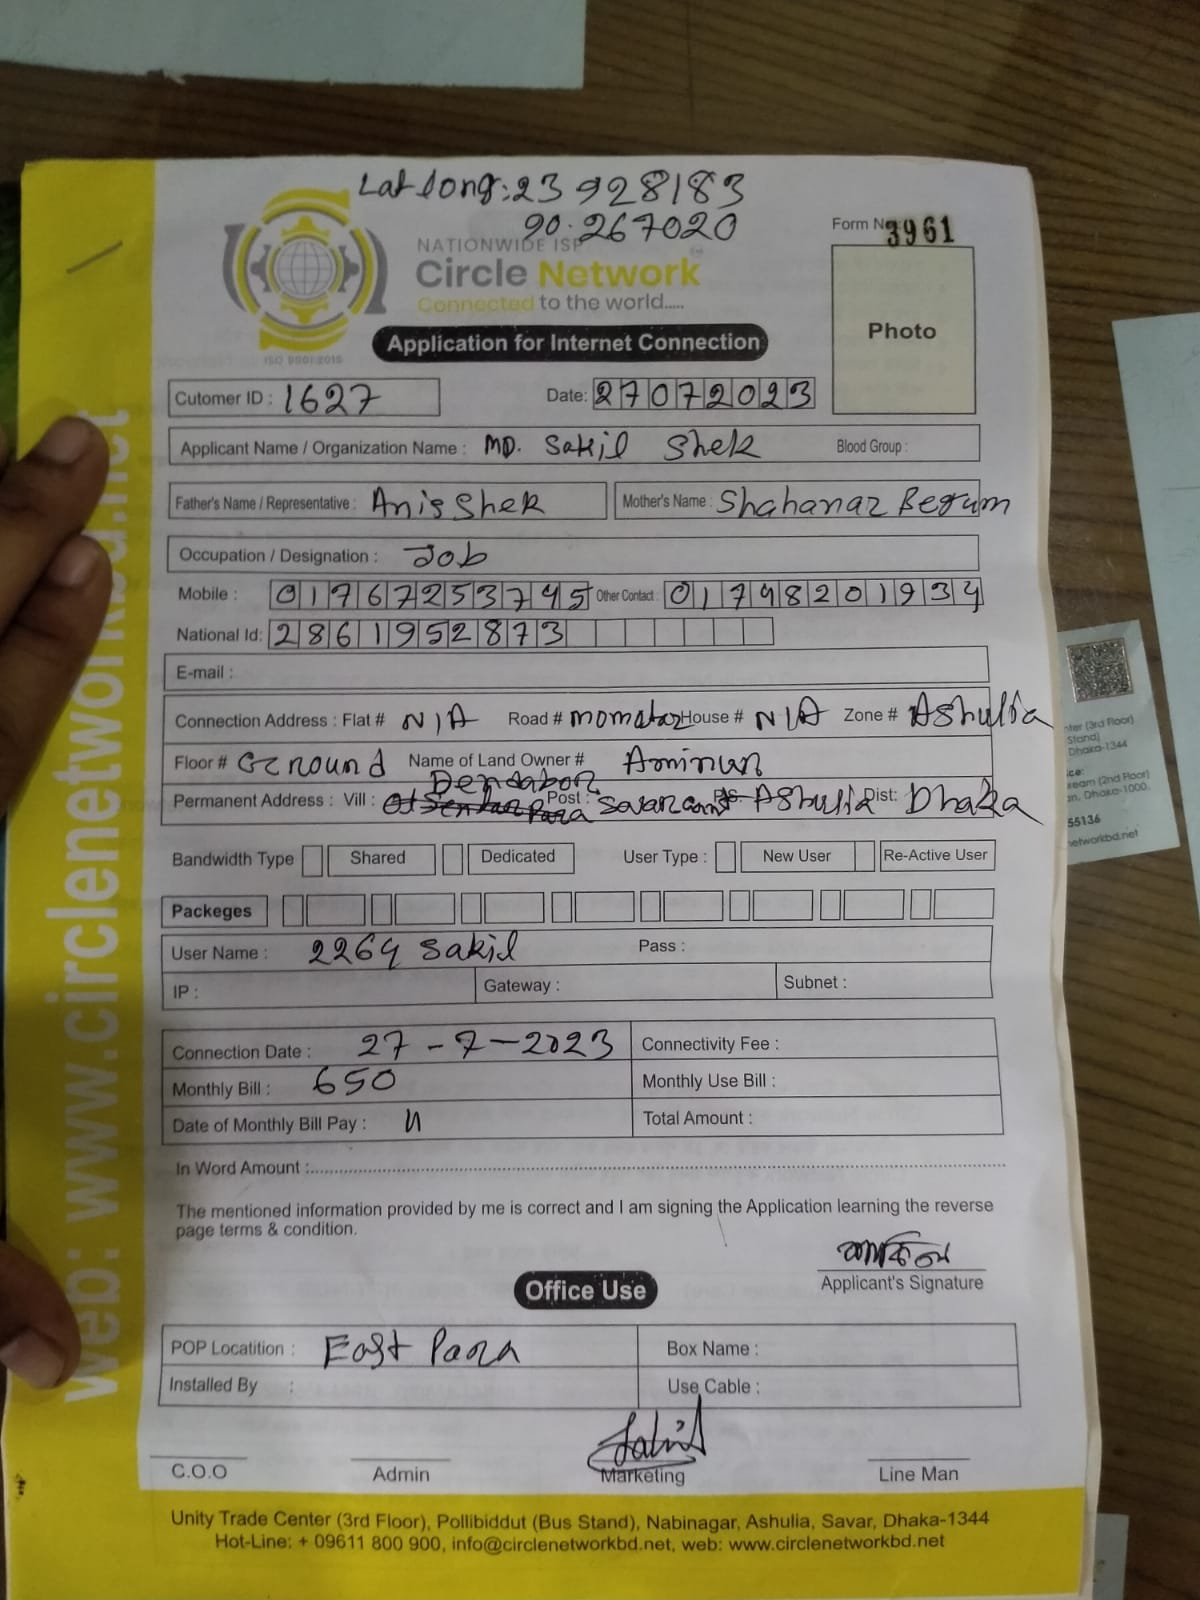 Lat long: 23 928183
90.267020
Form No 3961
NATIONWIDE ISP
Circle Network
Connected to the world.....
ISO 9001:2015
Photo
Application for Internet Connection
Cutomer ID : 1627 Date: 27072023
Applicant Name / Organization Name : MD. Sakil Shek Blood Group :
Father's Name / Representative : Anis Shek Mother's Name : Shahanaz Begum
Occupation / Designation : Job
Mobile : 01767253745 Other Contact : 01748201934
National Id: 2861952873
E-mail :
Connection Address : Flat # N/A Road # momotaz House # N/A Zone # Ashulia
Floor # Ground Name of Land Owner # Aminur
Permanent Address : Vill : Dendabor Post : Savar cant P.S. Ashulia Dist: Dhaka
Bandwidth Type Shared Dedicated User Type : New User Re-Active User
Packeges
User Name : 2264 Sakil Pass :
IP : Gateway : Subnet :
Connection Date : 27-7-2023 Connectivity Fee :
Monthly Bill : 650 Monthly Use Bill :
Date of Monthly Bill Pay : Total Amount :
In Word Amount :
The mentioned information provided by me is correct and I am signing the Application learning the reverse
page terms & condition.
Applicant's Signature
Office Use
POP Locatition : East Para Box Name :
Installed By : Use Cable :
C.O.O Admin Marketing Line Man
Unity Trade Center (3rd Floor), Pollibiddut (Bus Stand), Nabinagar, Ashulia, Savar, Dhaka-1344
Hot-Line: + 09611 800 900, info@circlenetworkbd.net, web: www.circlenetworkbd.net
web: www.circlenetworkbd.net
(3rd Floor)
Stand)
Dhaka-1344
(2nd Floor)
Dhaka-1000.
55136
networkbd.net